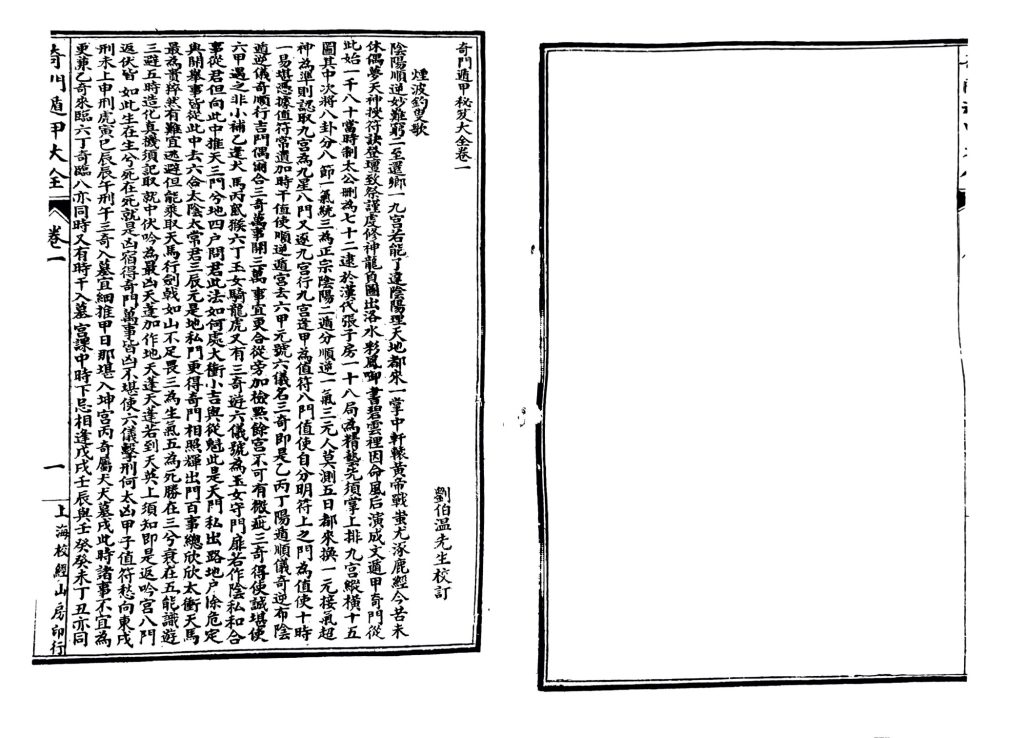 奇門遁甲秘笈大全卷一
劉伯温先生校訂
煙波釣叟歌
陰陽順逆妙難窮二至還鄉一九宮若能了達陰陽理天地都來一掌中軒轅黃帝戰蚩尤涿鹿經今苦未
休偶夢天神授符訣登壇致祭謹虔修神龍負圖出洛水彩鳳啣書碧雲裡因命風后演成文遁甲奇門從
此始一千八十當時制太公刪為七十二逮於漢代張子房一十八局為精藝先須掌上排九宮縱橫十五
圖其中次將八卦分八節一氣統三為正宗陰陽二遁分順逆一氣三元人莫測五日都來換一元接氣超
神為準則認取九宮為九星八門又逐九宮行九宮逢甲為值符八門值使自分明符上之門為值使十時
一易堪憑據值符常遣加時干值使順逆遁宮去六甲元號六儀名三奇即是乙丙丁陽遁順儀奇逆布陰
遁逆儀奇順行吉門偶爾合三奇萬事開三萬事宜更合從旁加檢點餘宮不可有微疵三奇得使誠堪使
六甲遇之非小補乙逢犬馬丙鼠猴六丁玉女騎龍虎又有三奇遊六儀號為玉女守門扉若作陰私和合
事從君但向此中推天三門兮地四户問君此法如何處太衝小吉與從魁此是天門私出路地户除危定
與開舉事皆從此中去六合太陰太常君三辰元是地私門更得奇門相照輝出門百事總欣欣太衝天馬
最為貴猝然有難宜逃避但能乘取天馬行劍戟如山不足畏三為生氣五為死勝在三兮衰在五能識遊
三避五時造化真機須記取就中伏吟為最凶天蓬加作地天蓬天蓬若到天英上須知即是返吟宮八門
返伏皆如此生在生兮死在死就是凶宿得奇門萬事皆凶不堪使六儀擊刑何太凶甲子值符愁向東戌
刑未上申刑虎寅巳辰辰午刑午三奇入墓宜細推甲日那堪入坤宮丙奇屬天火墓戌此時諸事不宜為
更兼乙奇來臨六丁奇臨八亦同時又有時干入墓宮課中時下忌相逢戊戌壬辰與壬癸癸未丁丑亦同
奇門遁甲大全
卷一
一
上海校經山房印行